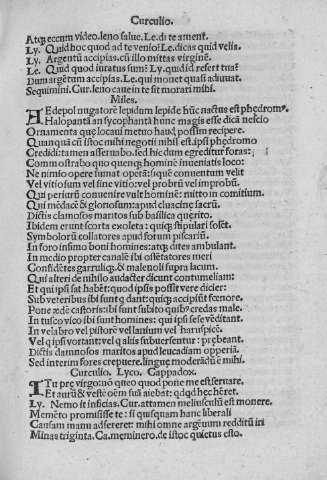 Curculio.
Atq; eccum video. leno salue. Le. di te ament.
Ly. Quid hoc quod ad te venio? Le. dicas quid velis.
Ly. Argentū accipias. cū illo mittas virginē.
Le. Quid quod iuratus sum? Ly. quid id refert tua?
Dum argētum accipias. Le. qui monet quasi adiuuat.
Sequimini. Cur. leno caue in te sit morari mihi.
Miles.
AEdepol nugatorē lepidum lepide hūc nactus est phędromꝰ.
Halopantā an sycophantā hunc magis esse dicā nescio
Ornamenta que locaui metuo haud possim recipere.
Quanquā cū istoc mihi negotii nihil est. ipsi phędromo
Credidi: tamen asseruabo. sed hic dum egreditur foras:
Commostrabo quo quenq; hominē inueniatis loco:
Ne nimio opere sumat operā: siquē conuentum velit
Vel vitiosum vel sine vitio: vel probrū vel improbū.
Qui periurū conuenire vult hominē: mitto in comitium.
Qui mēdacē & gloriosum: apud cluacinę sacrū.
Dictis clamosos maritos sub basilica quęrito.
Ibidem erunt scorta exoleta: quiq; stipulari solēt.
Symbolorū collatores apud forum piscariū.
In foro infimo boni homines: atq; dites ambulant.
In medio propter canalē ibi ostētatores meri
Confidētes garruliq; & malenoli supra lacum.
Qui alteri de nihilo audacter dicunt contumeliam:
Et qui ipsi sat habēt: quod ipsis possit vere dicier:
Sub veteribus ibi sunt q dant: quiq; accipiūt fœnore.
Pone ædē castoris: ibi sunt subito quibꝰ credas male.
In tusco vico ibi sunt homines: qui ipsi sese vēditant.
In velabro vel pistorē vel lanium vel haruspicē.
Vel q ipsi vortant: vel q aliis subuersentur: pręheant:
Dictis damnosos maritos apud leucadiam oppiā.
Sed interim fores crepuere. linguę moderādū ē mihi.
Curculio. Lyco. Cappadox.
ITu pre virgo: nō queo quod pone me est seruare.
Et aurū & vestē oēm suā aiebat: qdqd hęc hēret.
Ly. Nemo it inficias. Cur. attamen meliusculū est monere.
Memēto promisisse te: si quisquam hanc liberali
Causam manu adsereret: mihi omne argētum redditū iri
Minas triginta. Ca. meminero. de istoc quietus esto.